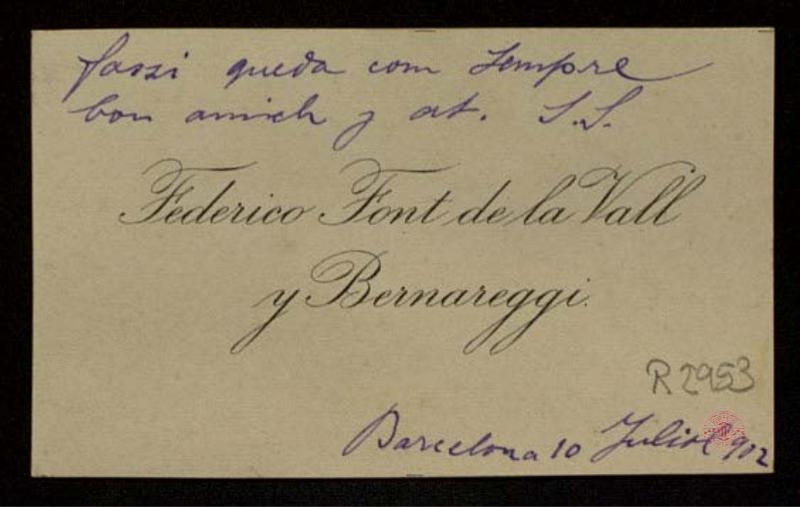 queda com sempre
bon amich y at. S.S.
Federico Font de la Vall
y Bernareggi.
R 2953
Barcelona 10 Juliol 902